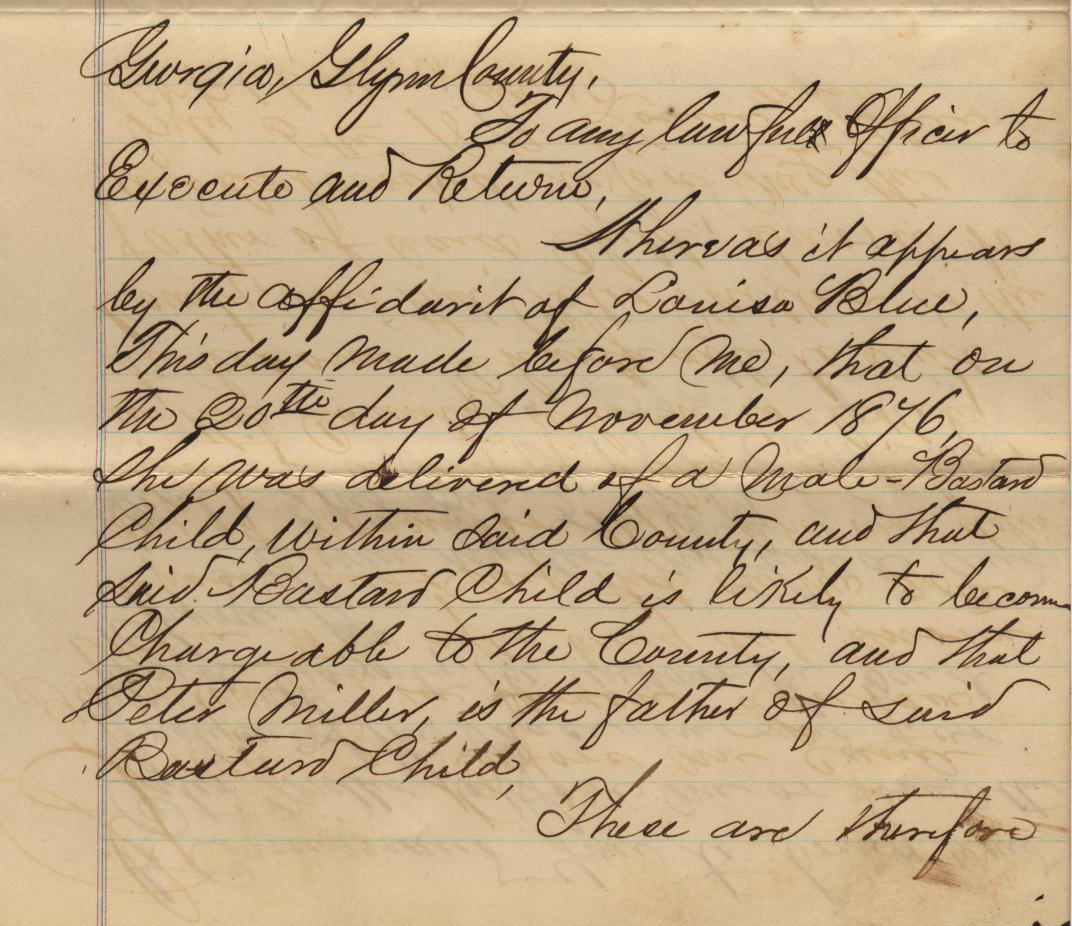 Georgia, Glynn County.
To any lawful Officer to
Execute and Return,
Whereas it appears
by the affidavit of Louisa Blue,
This day made before me, that on
the 20th day of November 1876,
she was delivered of a Male-Bastard
Child, within said County, and that
said Bastard Child is likely to become
Chargeable to the County, and that
Peter Miller, is the father of said
Bastard Child,
These are therefore